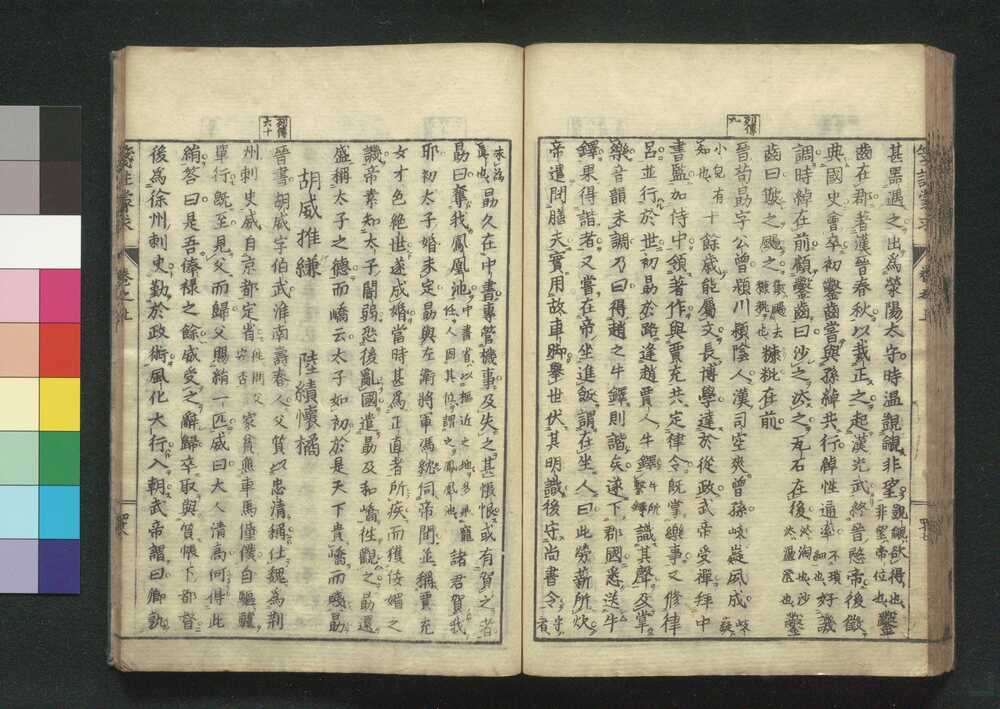 列傳
九
甚器遇之出爲滎陽太守時溫覬覦非望覬覦欲得也非望帝位也
齒在郡著漢晉春秋以裁正之起漢光武終晉愍帝後徵
典國史會卒初鑿齒嘗與孫綽共行綽性通率不瑣細也好譏
調時綽在前顧鑿齒曰沙之汰之瓦石在後
齒曰簸之颺之糠粃在前
晉荀勗字公曾潁川潁陰人漢司空爽曾孫岐嶷夙成
知也小兒有十餘歲能屬文長博學達於從政武帝受禪拜中
書監加侍中領著作與賈充共定律令既掌樂事又修律
呂並行於世初勗於路逢趙賈人牛鐸識其聲及掌
樂音韻未調乃曰得趙之牛鐸則諧矣遂下郡國悉送牛
鐸果得諧者又嘗在帝坐進飯謂在坐人曰此勞薪所炊
帝遣問膳夫實用故車脚擧世伏其明識後守尚書令
勗久在中書專管機事及失之甚悵悵或有賀之者
勗曰奪我鳳凰池諸君賀我
耶初太子婚未定勗與左衞將軍馮紞伺帝間並稱賈充
女才色絶世遂成婚當時甚爲正直者所疾而獲佞媚之
譏帝素知太子闇弱恐後亂國遣勗及和嶠往觀之勗還
盛稱太子之德而嶠云太子如初於是天下貴嶠而賤勗
胡威推縑 陸績懷橘
列傳
六十
晉書胡威字伯武淮南壽春人父質以忠清稱仕魏為荊
州刺史威自京都定省家貧無車馬僮僕自驅驢
單行既至見父而歸父賜絹一匹威曰大人清高何得此
絹答曰是吾俸祿之餘威受之辭歸卒取與質帳下都督
後爲徐州刺史勤於政術風化大行入朝武帝謂曰卿孰